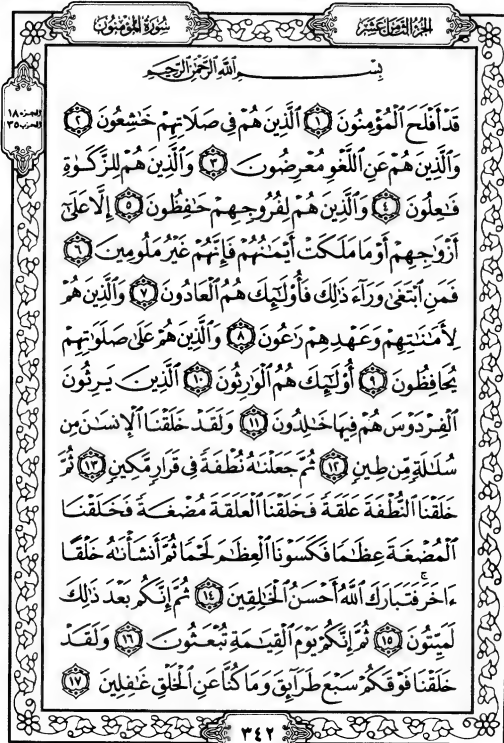 الجزء الثامن عشر
سورة المؤمنون
الجزء ١٨
الحزب ٣٥
بِسْمِ اللَّهِ الرَّحْمَٰنِ الرَّحِيمِ
قَدْ أَفْلَحَ الْمُؤْمِنُونَ ١ الَّذِينَ هُمْ فِي صَلَاتِهِمْ خَٰشِعُونَ ٢
وَالَّذِينَ هُمْ عَنِ اللَّغْوِ مُعْرِضُونَ ٣ وَالَّذِينَ هُمْ لِلزَّكَوٰةِ
فَٰعِلُونَ ٤ وَالَّذِينَ هُمْ لِفُرُوجِهِمْ حَٰفِظُونَ ٥ إِلَّا عَلَىٰ
أَزْوَٰجِهِمْ أَوْ مَا مَلَكَتْ أَيْمَٰنُهُمْ فَإِنَّهُمْ غَيْرُ مَلُومِينَ ٦
فَمَنِ ابْتَغَىٰ وَرَآءَ ذَٰلِكَ فَأُولَٰٓئِكَ هُمُ الْعَادُونَ ٧ وَالَّذِينَ هُمْ
لِأَمَٰنَٰتِهِمْ وَعَهْدِهِمْ رَٰعُونَ ٨ وَالَّذِينَ هُمْ عَلَىٰ صَلَوَٰتِهِمْ
يُحَافِظُونَ ٩ أُولَٰٓئِكَ هُمُ الْوَٰرِثُونَ ١٠ الَّذِينَ يَرِثُونَ
الْفِرْدَوْسَ هُمْ فِيهَا خَٰلِدُونَ ١١ وَلَقَدْ خَلَقْنَا الْإِنسَٰنَ مِن
سُلَٰلَةٍ مِّن طِينٍ ١٢ ثُمَّ جَعَلْنَٰهُ نُطْفَةً فِي قَرَارٍ مَّكِينٍ ١٣ ثُمَّ
خَلَقْنَا النُّطْفَةَ عَلَقَةً فَخَلَقْنَا الْعَلَقَةَ مُضْغَةً فَخَلَقْنَا
الْمُضْغَةَ عِظَٰمًا فَكَسَوْنَا الْعِظَٰمَ لَحْمًا ثُمَّ أَنشَأْنَٰهُ خَلْقًا
ءَاخَرَ ۚ فَتَبَارَكَ اللَّهُ أَحْسَنُ الْخَٰلِقِينَ ١٤ ثُمَّ إِنَّكُم بَعْدَ ذَٰلِكَ
لَمَيِّتُونَ ١٥ ثُمَّ إِنَّكُمْ يَوْمَ الْقِيَٰمَةِ تُبْعَثُونَ ١٦ وَلَقَدْ
خَلَقْنَا فَوْقَكُمْ سَبْعَ طَرَآئِقَ وَمَا كُنَّا عَنِ الْخَلْقِ غَٰفِلِينَ ١٧
٣٤٢